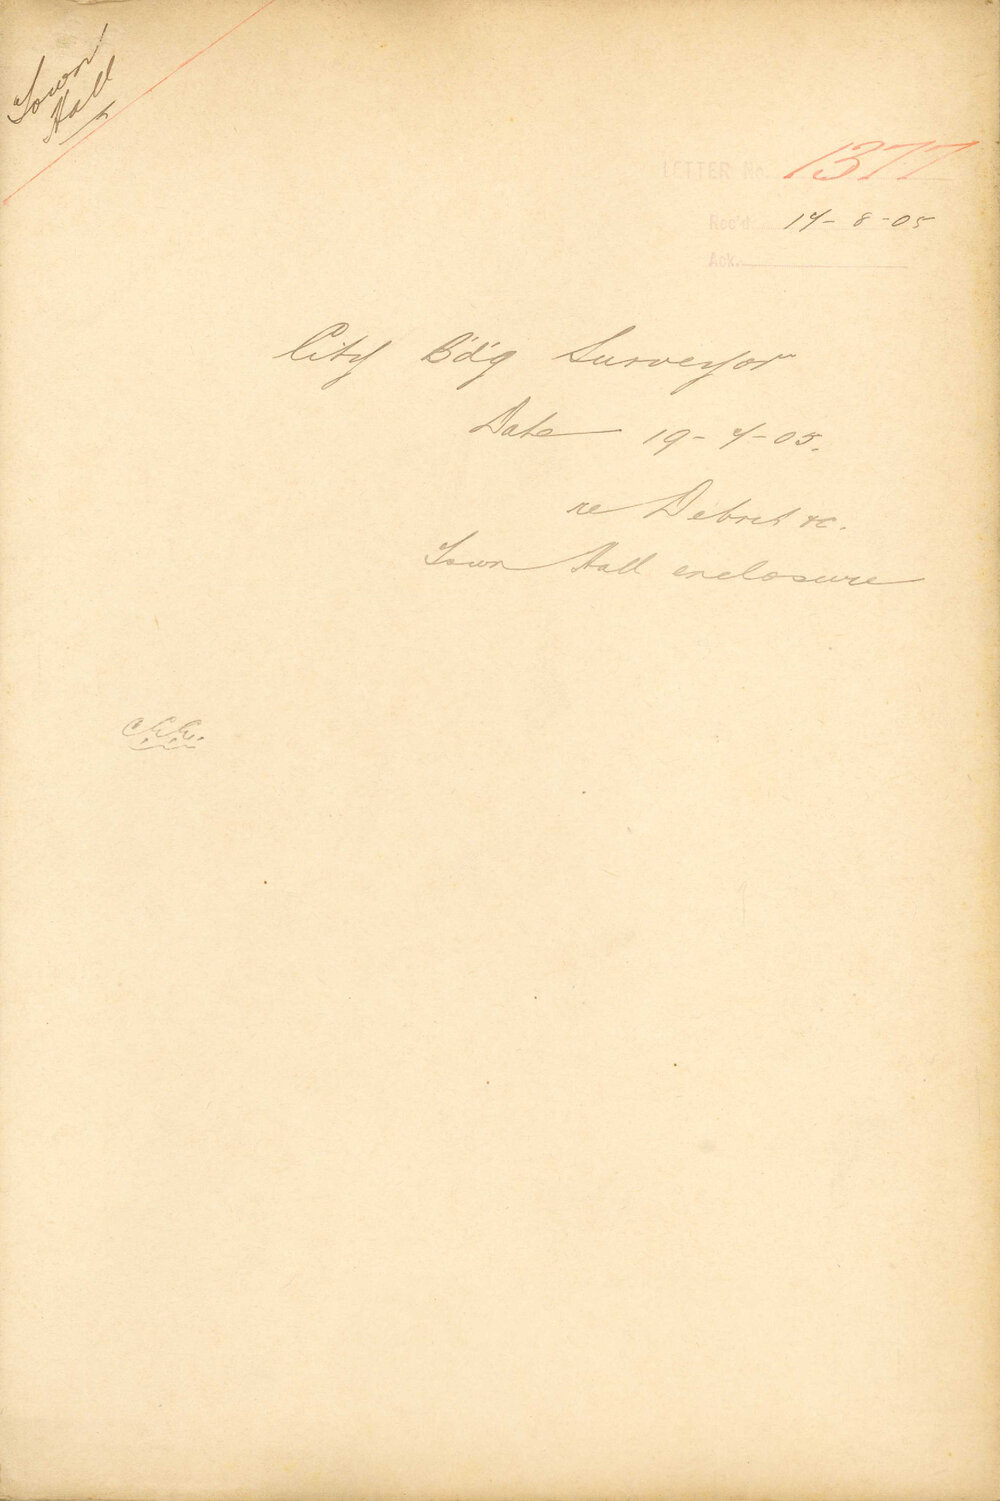 Town
Hall
LETTER No. 1377
Rec'd 14-8-05
Ack.
City B'd'g Surveyor
Date 19-7-05.
re Debris &c.
Town Hall enclosure